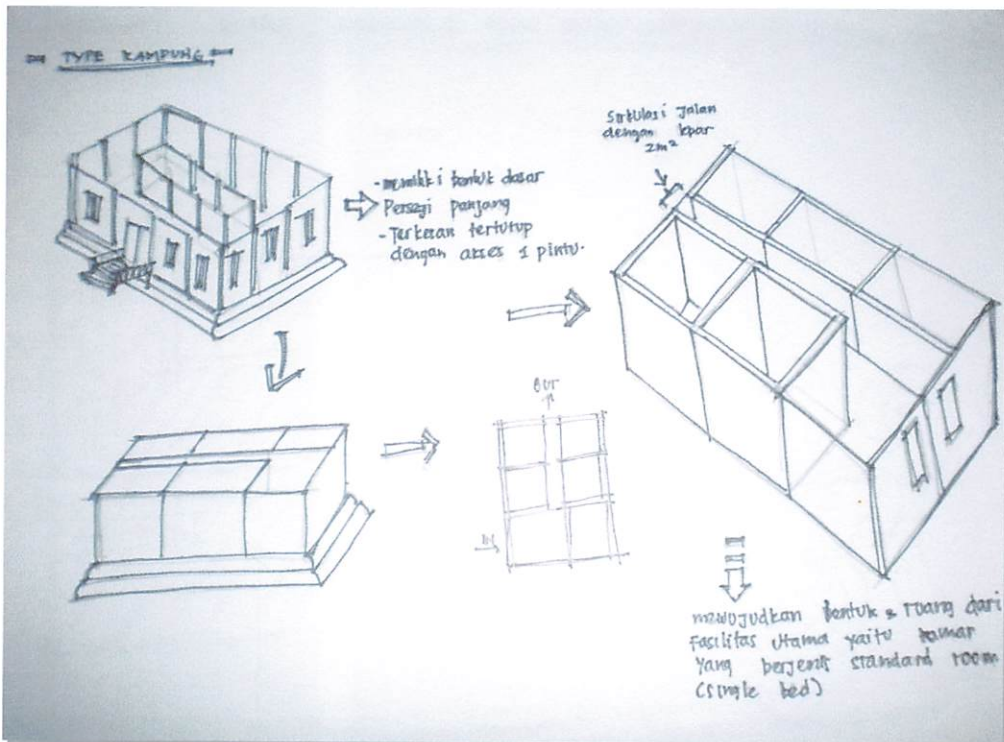 TYPE KAMPUNG
- memiliki bentuk dasar
Persegi panjang
- Terkesan tertutup
dengan akses 1 pintu.
Sirkulasi Jalan
dengan lebar
2m²
OUT
IN
mewujudkan Bentuk & ruang dari
Fasilitas Utama yaitu kamar
Yang berjenis standard room
(single bed)